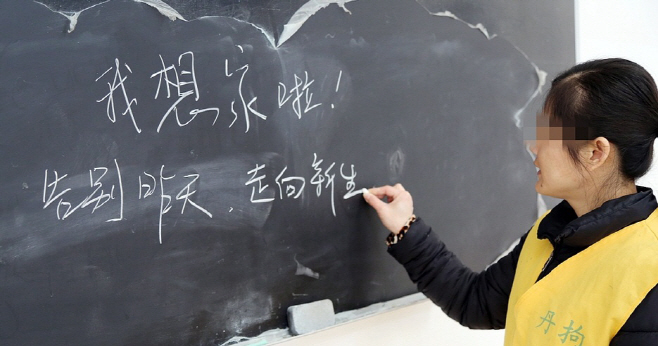 我想家啦!
告别昨天,走向新生
丹拘